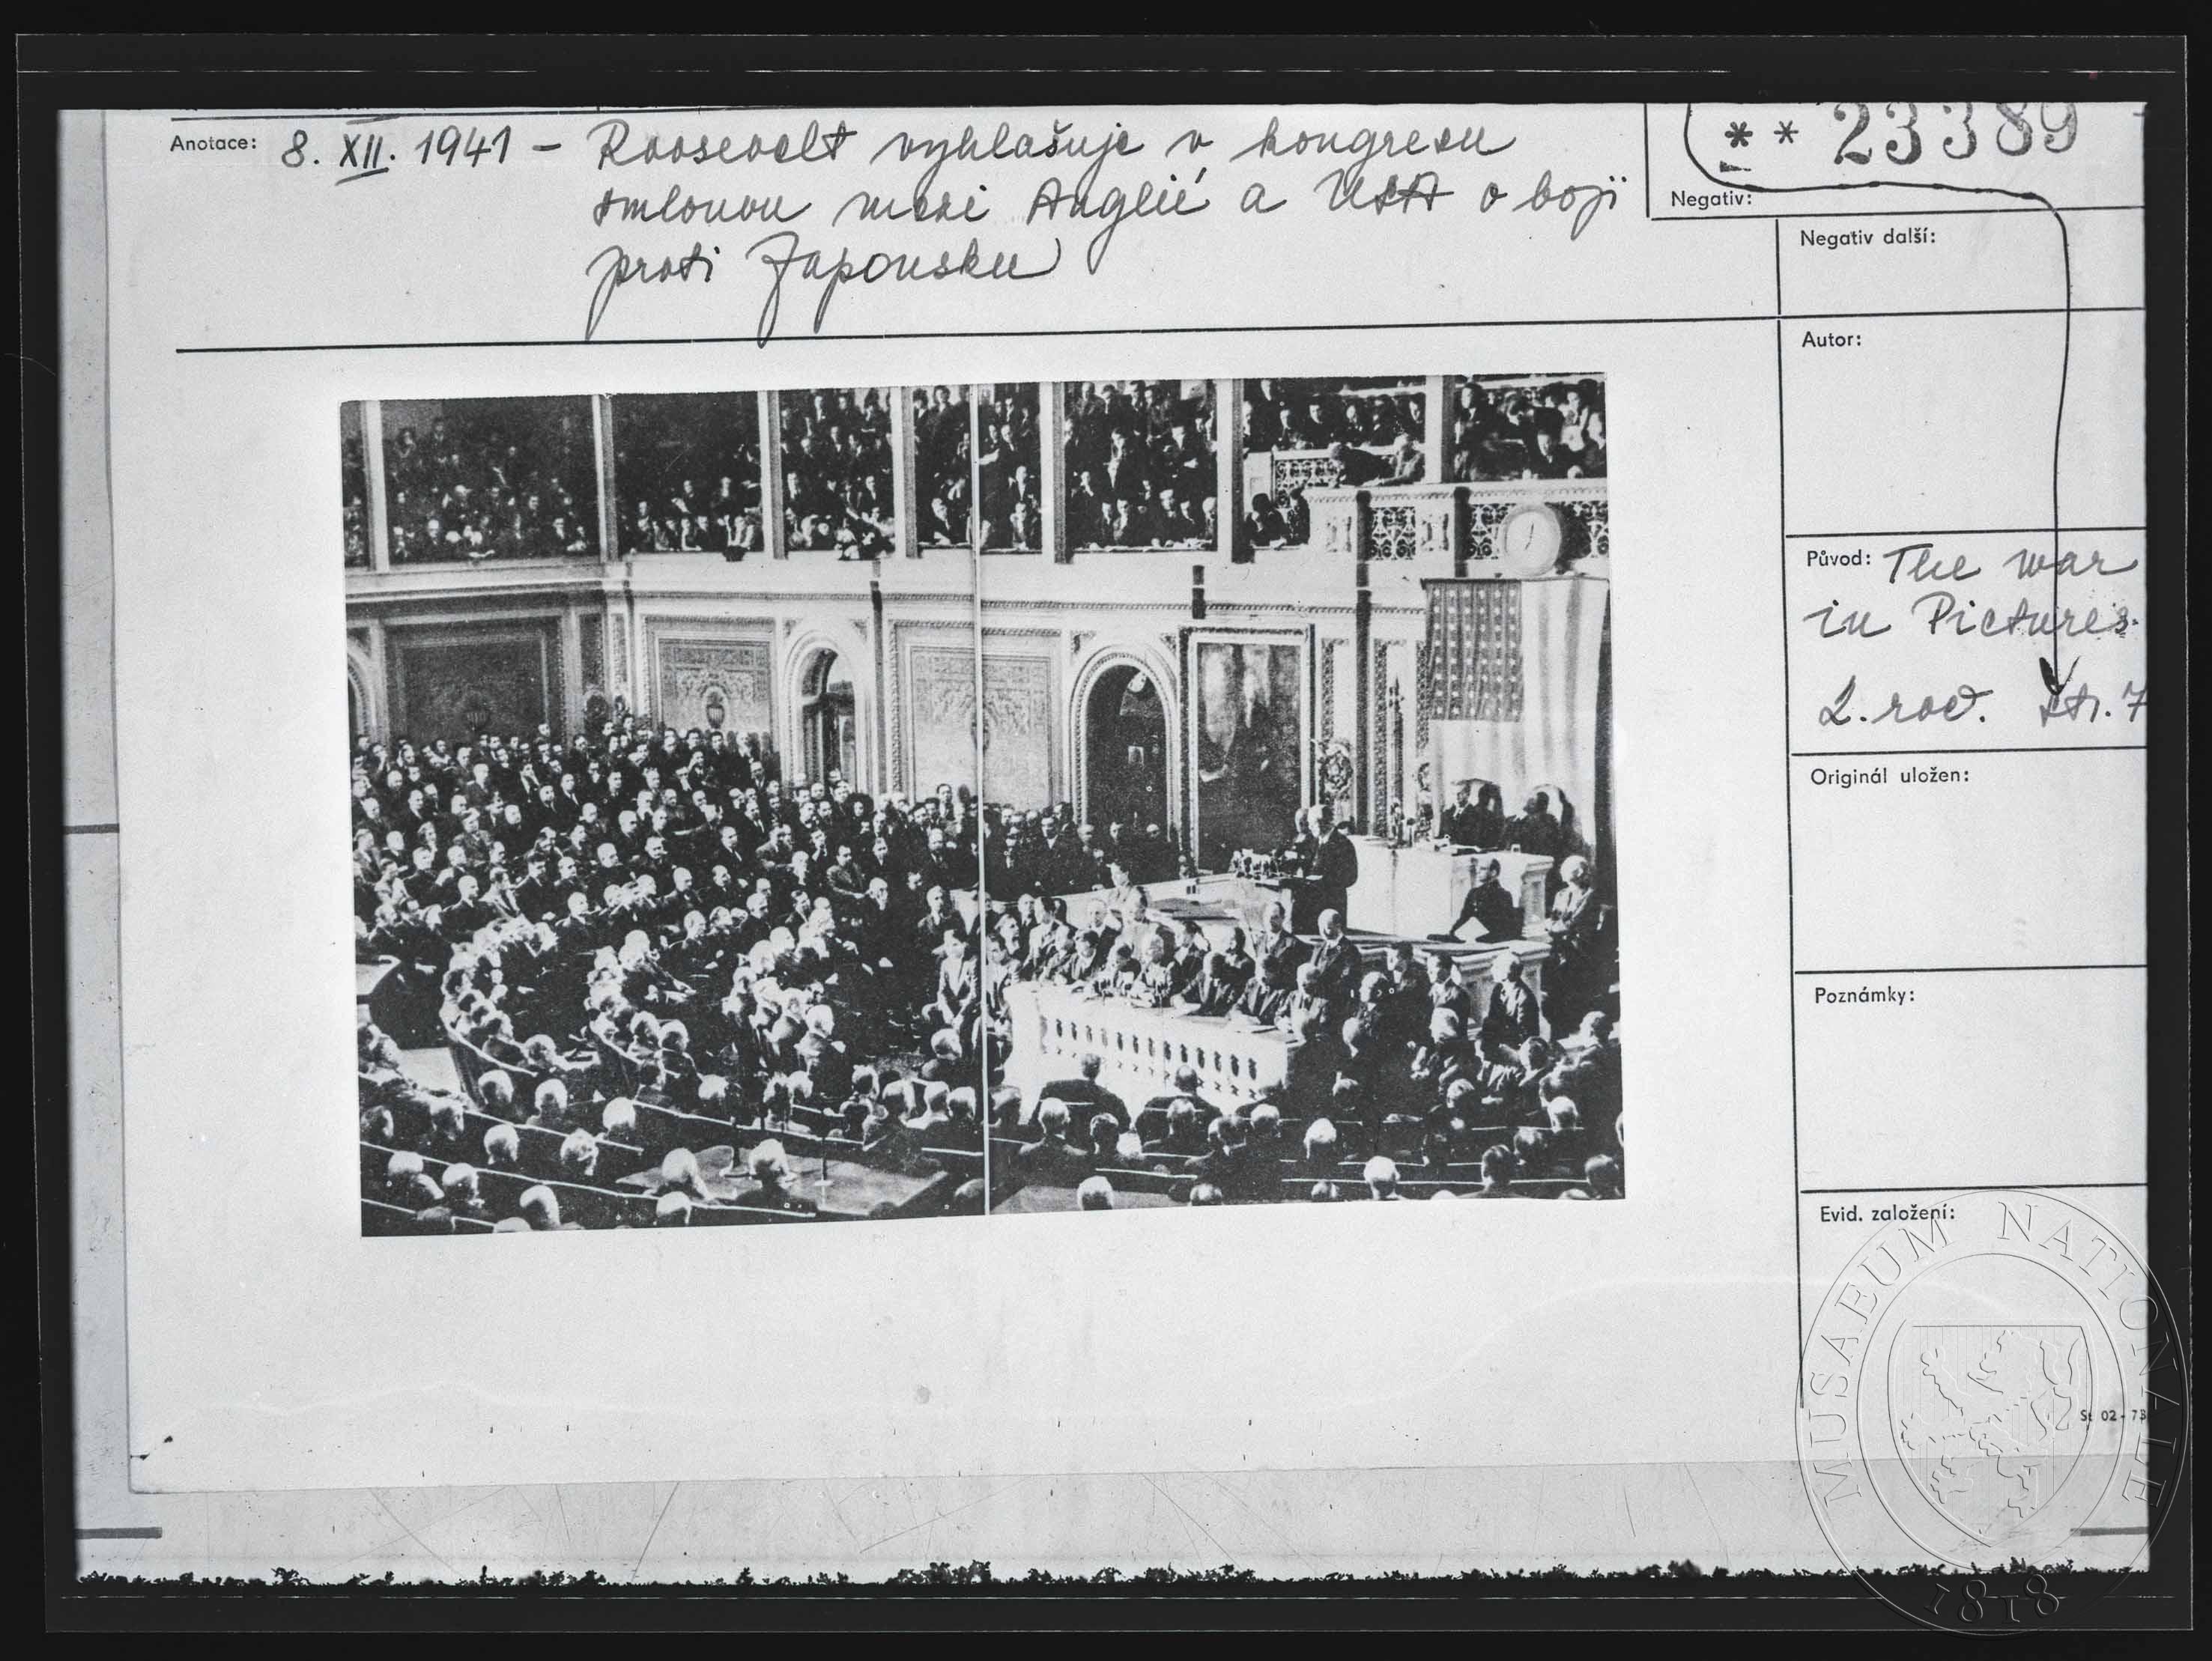 Anotace: 8. XII. 1941 - Roosevelt vyhlašuje v kongresu
smlouvu mezi Anglií a USA o boji
proti Japonsku
** 23389
Negativ:
Negativ další:
Autor:
Původ: The war
in Pictures.
2. roč. str. 7
Originál uložen:
Poznámky:
Evid. založení:
St 02 - 73
MUSAEUM NATIONALE
1818